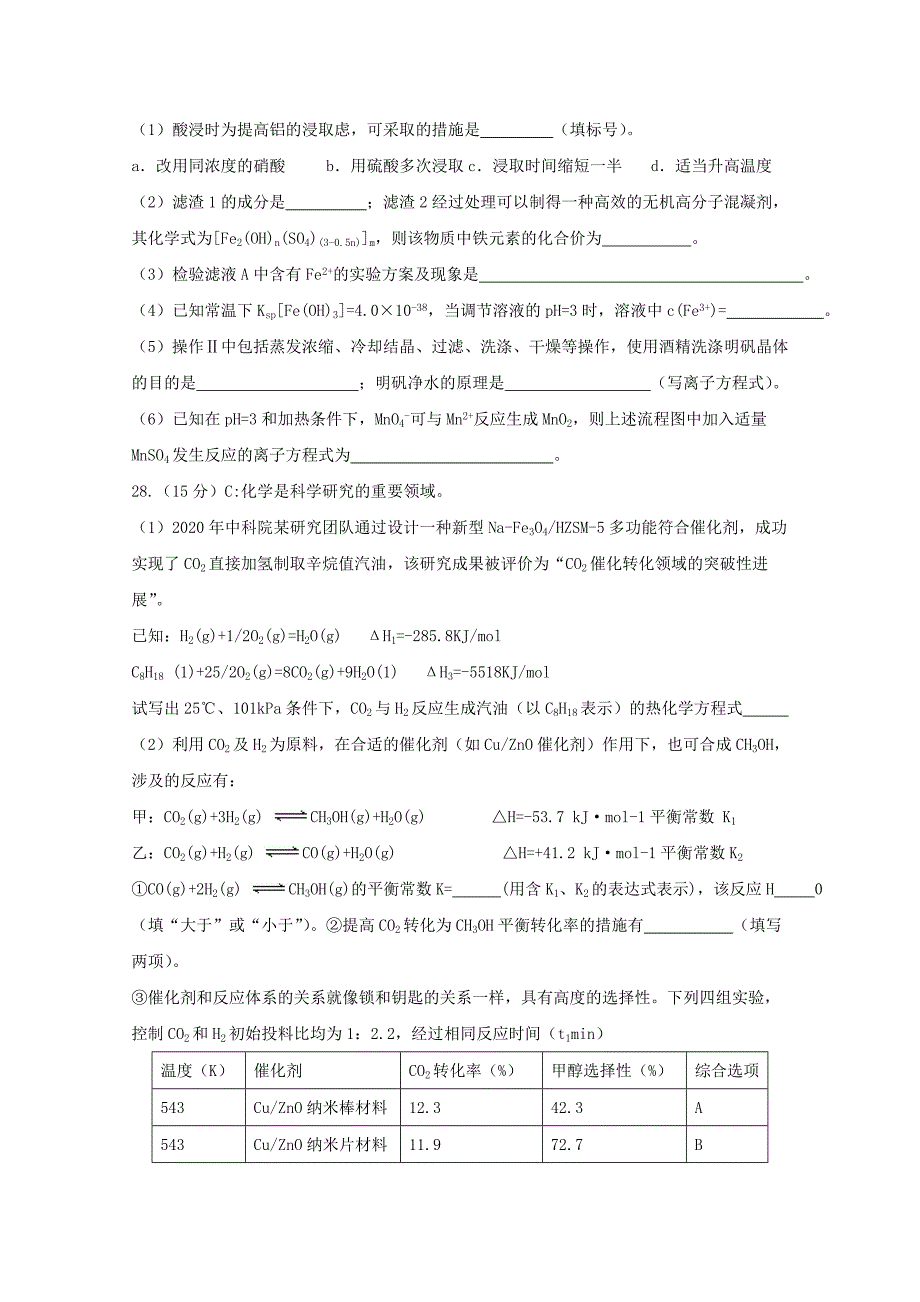 （1）酸浸时为提高铝的浸取虑，可采取的措施是_________（填标号）。
a．改用同浓度的硝酸 b．用硫酸多次浸取 c．浸取时间缩短一半 d．适当升高温度
（2）滤渣1的成分是__________；滤渣2经过处理可以制得一种高效的无机高分子混凝剂，
其化学式为[Fe₂(OH)ₙ(SO₄)₍₃₋₀.₅ₙ₎]ₘ，则该物质中铁元素的化合价为___________。
（3）检验滤液A中含有Fe²⁺的实验方案及现象是________________________________________。
（4）已知常温下Kₛₚ[Fe(OH)₃]=4.0×10⁻³⁸，当调节溶液的pH=3时，溶液中c(Fe³⁺)=____________。
（5）操作Ⅱ中包括蒸发浓缩、冷却结晶、过滤、洗涤、干燥等操作，使用酒精洗涤明矾晶体
的目的是____________________；明矾净水的原理是__________________（写离子方程式）。
（6）已知在pH=3和加热条件下，MnO₄⁻可与Mn²⁺反应生成MnO₂，则上述流程图中加入适量
MnSO₄发生反应的离子方程式为_________________________。
28.（15分）C:化学是科学研究的重要领域。
（1）2020年中科院某研究团队通过设计一种新型Na-Fe₃O₄/HZSM-5多功能符合催化剂，成功
实现了CO₂直接加氢制取辛烷值汽油，该研究成果被评价为“CO₂催化转化领域的突破性进
展”。
已知：H₂(g)+1/2O₂(g)=H₂O(g) ΔH₁=-285.8KJ/mol
C₈H₁₈ (1)+25/2O₂(g)=8CO₂(g)+9H₂O(1) ΔH₃=-5518KJ/mol
试写出25℃、101kPa条件下，CO₂与H₂反应生成汽油（以C₈H₁₈表示）的热化学方程式______
（2）利用CO₂及H₂为原料，在合适的催化剂（如Cu/ZnO催化剂）作用下，也可合成CH₃OH，
涉及的反应有：
甲：CO₂(g)+3H₂(g) ⇌ CH₃OH(g)+H₂O(g) △H=-53.7 kJ·mol-1平衡常数 K₁
乙：CO₂(g)+H₂(g) ⇌ CO(g)+H₂O(g) △H=+41.2 kJ·mol-1平衡常数K₂
①CO(g)+2H₂(g) ⇌ CH₃OH(g)的平衡常数K=______(用含K₁、K₂的表达式表示)，该反应H_____0
（填“大于”或“小于”）。②提高CO₂转化为CH₃OH平衡转化率的措施有___________（填写
两项）。
③催化剂和反应体系的关系就像锁和钥匙的关系一样，具有高度的选择性。下列四组实验，
控制CO₂和H₂初始投料比均为1：2.2，经过相同反应时间（t₁min）
温度（K） 催化剂 CO₂转化率（%） 甲醇选择性（%） 综合选项
543 Cu/ZnO纳米棒材料 12.3 42.3 A
543 Cu/ZnO纳米片材料 11.9 72.7 B